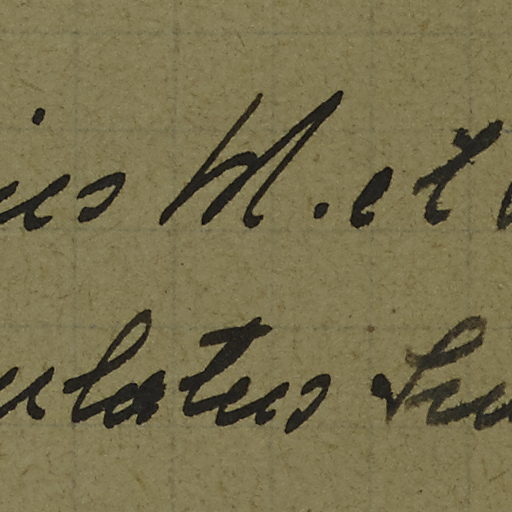 ius M. et
ulatus Su